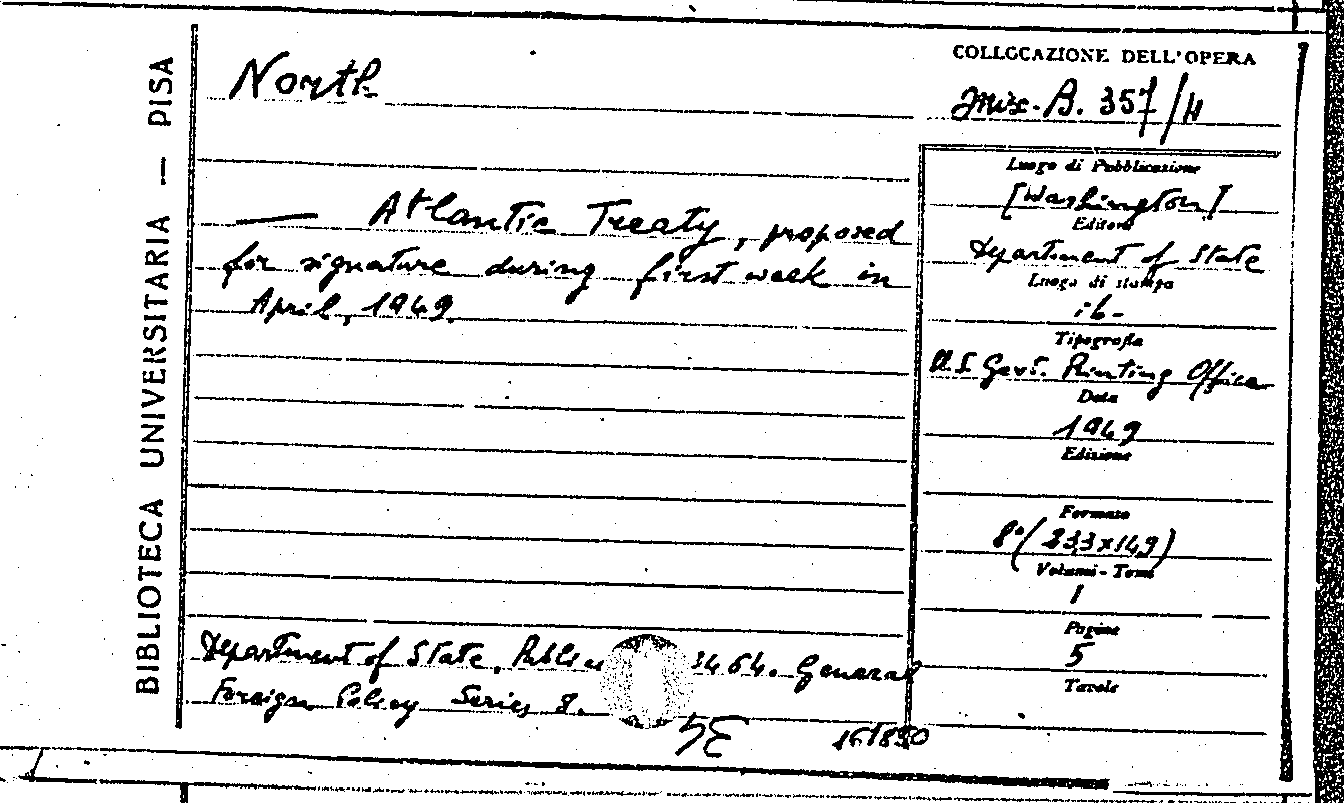 BIBLIOTECA UNIVERSITARIA — PISA
North
— Atlantic Treaty, proposed
for signature during first week in
April, 1949.
Department of State, 3464. General
Foreign Policy Series 8.
COLLOCAZIONE DELL'OPERA
Misc. A. 357/11
Luogo di Pubblicazione
[Washington]
Editore
Department of State
Luogo di stampa
ib-
Tipografia
U.S Govt. Printing Office
Data
1949
Edizione
Formato
8°(233x149)
Volumi - Tomi
1
Pagine
5
Tavole